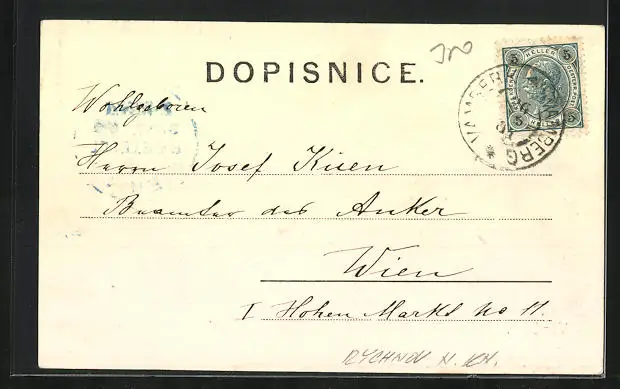 DOPISNICE.
5 HELLER 5
VAMBERG * VAMBERG
Wohlgeboren
Herrn Josef Kuen
Beamter des Anker
Wien
I Hohen Markt No 11.
RYCHNOV N. KN.